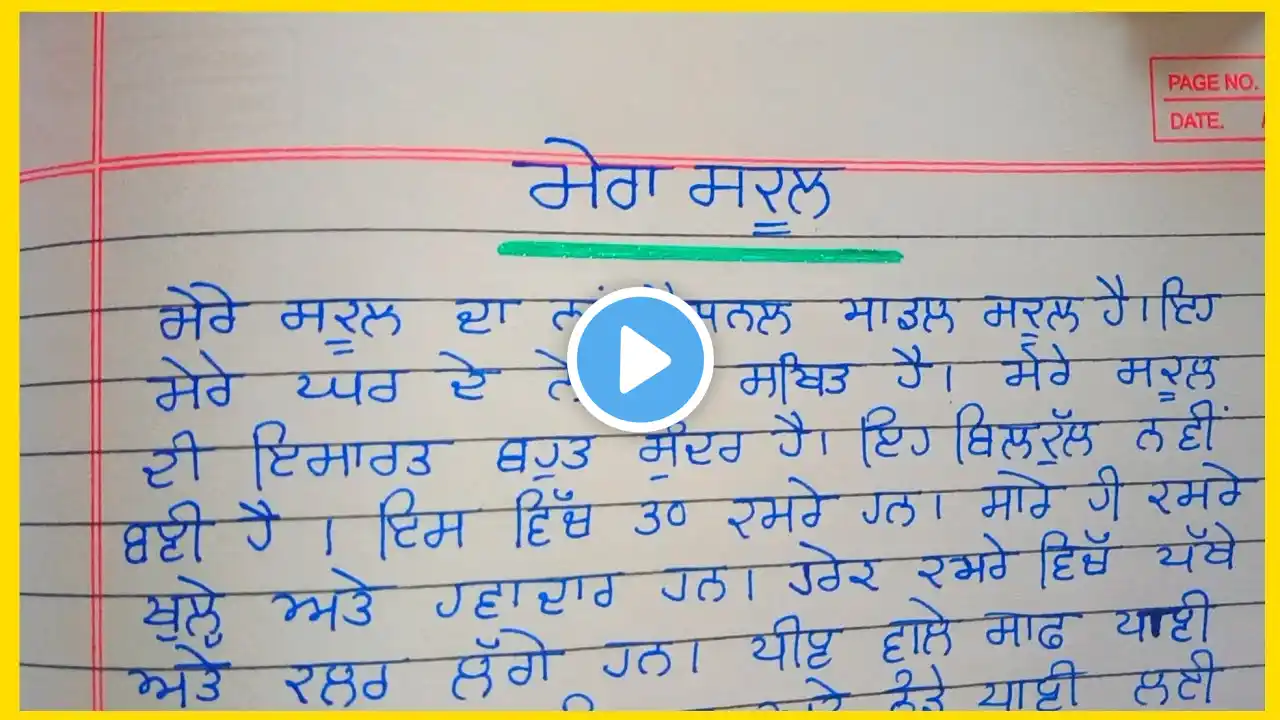 PAGE NO.
DATE.
ਮੇਰਾ ਸਕੂਲ
ਮੇਰੇ ਸਕੂਲ ਦਾ ਮਾਡਲ ਸਕੂਲ ਹੈ। ਇਹ
ਮੇਰੇ ਘਰ ਦੇ ਸਥਿਤ ਹੈ। ਮੇਰੇ ਸਕੂਲ
ਦੀ ਇਮਾਰਤ ਬਹੁਤ ਸੁੰਦਰ ਹੈ। ਇਹ ਬਿਲਕੁੱਲ ਨਵੀਂ
ਬਣੀ ਹੈ । ਇਸ ਵਿੱਚ 30 ਕਮਰੇ ਹਨ। ਸਾਰੇ ਹੀ ਕਮਰੇ
ਖੁਲ੍ਹੇ ਅਤੇ ਹਵਾਦਾਰ ਹਨ। ਹਰੇਕ ਕਮਰੇ ਵਿੱਚ ਪੱਖੇ
ਅਤੇ ਕਲਰ ਲੱਗੇ ਹਨ। ਪੀਣ ਵਾਲੇ ਸਾਫ ਪਾਣੀ
ਪਾਣੀ ਲਈ